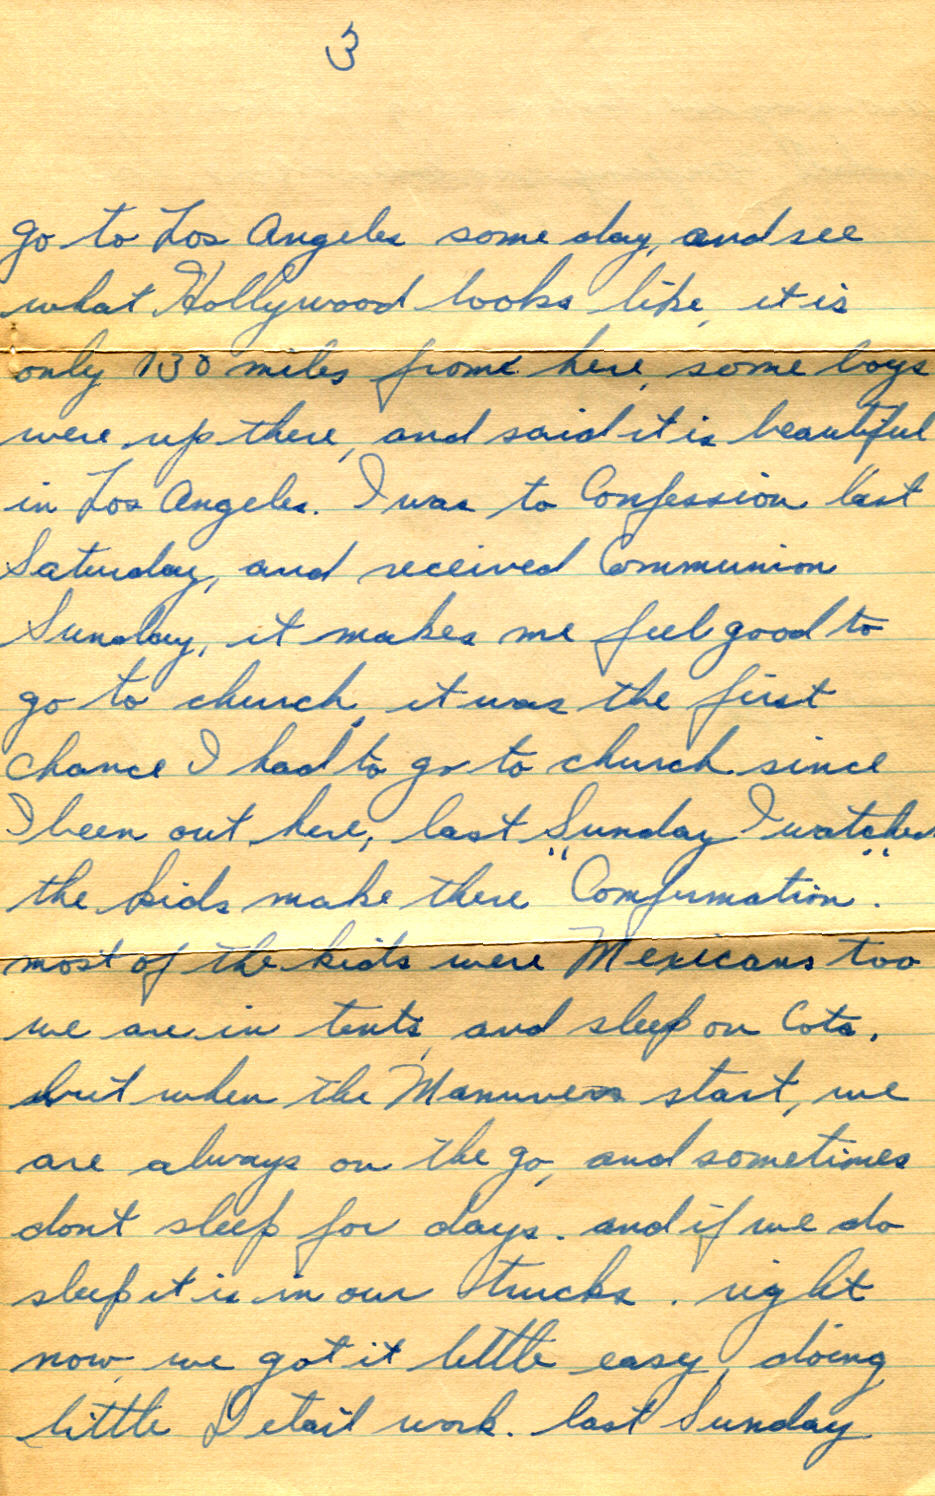 3
go to Los Angeles some day, and see
what Hollywood looks like, it is
only 130 miles from here, some boys
were up there, and said it is beautiful
in Los Angeles. I was to Confession last
Saturday, and received Communion
Sunday, it makes me feel good to
go to church, it was the first
chance I had to go to church since
I been out here, last Sunday I watched
the kids make there "Comfirmation".
most of the kids were Mexicans too
we are in tents, and sleep on Cots.
but when the Manuvers start, we
are always on the go, and sometimes
dont sleep for days. and if we do
sleep it is in our trucks. right
now we got it little easy, doing
little Detail work. last Sunday